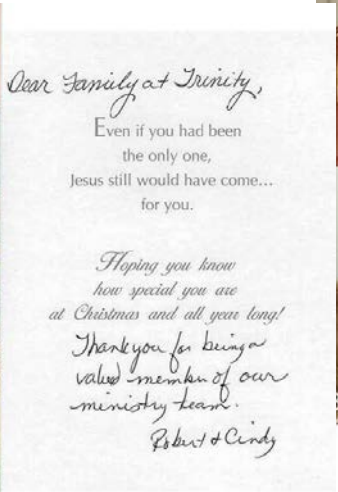 Dear Family at Trinity,
Even if you had been
the only one,
Jesus still would have come...
for you.
Hoping you know
how special you are
at Christmas and all year long!
Thank you for being a
valued member of our
ministry team.
Robert & Cindy